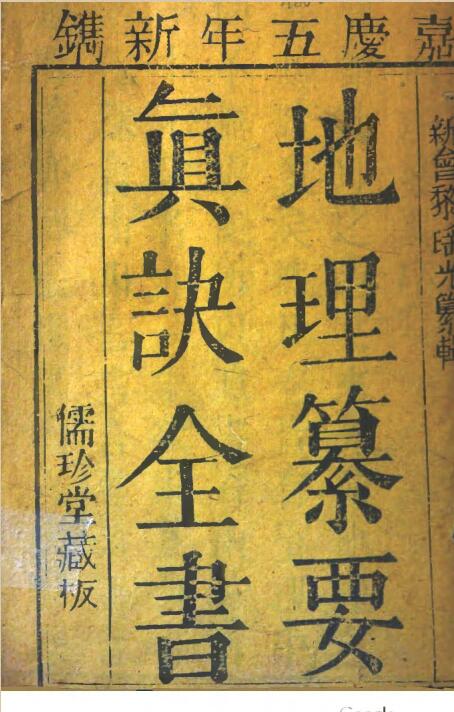 嘉慶五年新鐫
新會黎
光纂輯
地理纂要
眞訣全書
儒珍堂藏板